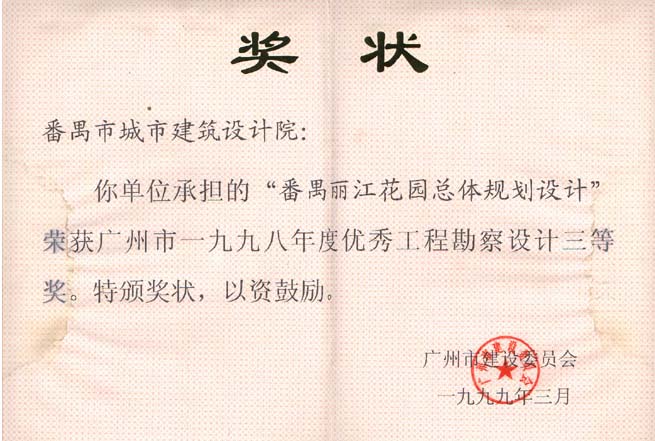 奖 状
番禺市城市建筑设计院:
你单位承担的“番禺丽江花园总体规划设计”
荣获广州市一九九八年度优秀工程勘察设计三等
奖。特颁奖状，以资鼓励。
广州市建设委员会
一九九九年三月
广州市建设委员会